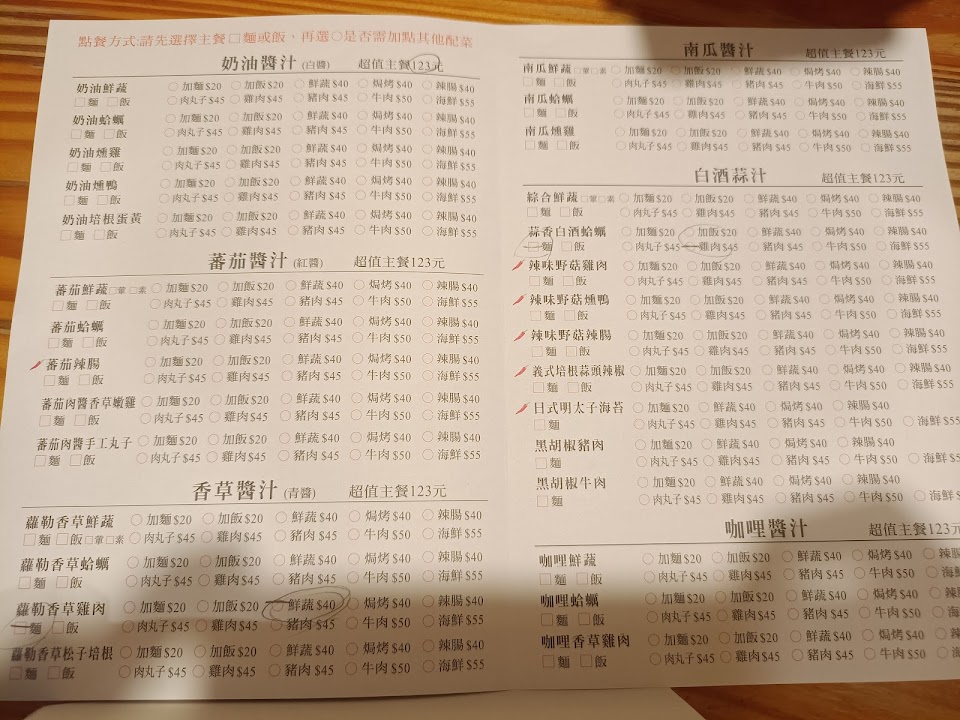 點餐方式:請先選擇主餐□麵或飯、再選○是否需加點其他配菜
奶油醬汁 (白醬) 超值主餐123元
奶油鮮蔬 ○加麵$20 ○加飯$20 ○鮮蔬$40 ○焗烤$40 ○辣腸$40
□麵 □飯 ○肉丸子$45 ○雞肉$45 ○豬肉$45 ○牛肉$50 ○海鮮$55
奶油蛤蠣 ○加麵$20 ○加飯$20 ○鮮蔬$40 ○焗烤$40 ○辣腸$40
□麵 □飯 ○肉丸子$45 ○雞肉$45 ○豬肉$45 ○牛肉$50 ○海鮮$55
奶油燻雞 ○加麵$20 ○加飯$20 ○鮮蔬$40 ○焗烤$40 ○辣腸$40
□麵 □飯 ○肉丸子$45 ○雞肉$45 ○豬肉$45 ○牛肉$50 ○海鮮$55
奶油燻鴨 ○加麵$20 ○加飯$20 ○鮮蔬$40 ○焗烤$40 ○辣腸$40
□麵 □飯 ○肉丸子$45 ○雞肉$45 ○豬肉$45 ○牛肉$50 ○海鮮$55
奶油培根蛋黃 ○加麵$20 ○加飯$20 ○鮮蔬$40 ○焗烤$40 ○辣腸$40
□麵 □飯 ○肉丸子$45 ○雞肉$45 ○豬肉$45 ○牛肉$50 ○海鮮$55
蕃茄醬汁 (紅醬) 超值主餐123元
蕃茄鮮蔬□葷□素 ○加麵$20 ○加飯$20 ○鮮蔬$40 ○焗烤$40 ○辣腸$40
□麵 □飯 ○肉丸子$45 ○雞肉$45 ○豬肉$45 ○牛肉$50 ○海鮮$55
蕃茄蛤蠣 ○加麵$20 ○加飯$20 ○鮮蔬$40 ○焗烤$40 ○辣腸$40
□麵 □飯 ○肉丸子$45 ○雞肉$45 ○豬肉$45 ○牛肉$50 ○海鮮$55
蕃茄辣腸 ○加麵$20 ○加飯$20 ○鮮蔬$40 ○焗烤$40 ○辣腸$40
□麵 □飯 ○肉丸子$45 ○雞肉$45 ○豬肉$45 ○牛肉$50 ○海鮮$55
蕃茄肉醬香草嫩雞 ○加麵$20 ○加飯$20 ○鮮蔬$40 ○焗烤$40 ○辣腸$40
□麵 □飯 ○肉丸子$45 ○雞肉$45 ○豬肉$45 ○牛肉$50 ○海鮮$55
蕃茄肉醬手工丸子 ○加麵$20 ○加飯$20 ○鮮蔬$40 ○焗烤$40 ○辣腸$40
□麵 □飯 ○肉丸子$45 ○雞肉$45 ○豬肉$45 ○牛肉$50 ○海鮮$55
香草醬汁 (青醬) 超值主餐123元
蘿勒香草鮮蔬 ○加麵$20 ○加飯$20 ○鮮蔬$40 ○焗烤$40 ○辣腸$40
□麵 □飯□葷□素 ○肉丸子$45 ○雞肉$45 ○豬肉$45 ○牛肉$50 ○海鮮$55
蘿勒香草蛤蠣 ○加麵$20 ○加飯$20 ○鮮蔬$40 ○焗烤$40 ○辣腸$40
□麵 □飯 ○肉丸子$45 ○雞肉$45 ○豬肉$45 ○牛肉$50 ○海鮮$55
蘿勒香草雞肉 ○加麵$20 ○加飯$20 ○鮮蔬$40 ○焗烤$40 ○辣腸$40
□麵 □飯 ○肉丸子$45 ○雞肉$45 ○豬肉$45 ○牛肉$50 ○海鮮$55
蘿勒香草松子培根 ○加麵$20 ○加飯$20 ○鮮蔬$40 ○焗烤$40 ○辣腸$40
□麵 □飯 ○肉丸子$45 ○雞肉$45 ○豬肉$45 ○牛肉$50 ○海鮮$55
南瓜醬汁 超值主餐123元
南瓜鮮蔬□葷□素 ○加麵$20 ○加飯$20 ○鮮蔬$40 ○焗烤$40 ○辣腸$40
□麵 □飯 ○肉丸子$45 ○雞肉$45 ○豬肉$45 ○牛肉$50 ○海鮮$55
南瓜蛤蠣 ○加麵$20 ○加飯$20 ○鮮蔬$40 ○焗烤$40 ○辣腸$40
□麵 □飯 ○肉丸子$45 ○雞肉$45 ○豬肉$45 ○牛肉$50 ○海鮮$55
南瓜燻雞 ○加麵$20 ○加飯$20 ○鮮蔬$40 ○焗烤$40 ○辣腸$40
□麵 □飯 ○肉丸子$45 ○雞肉$45 ○豬肉$45 ○牛肉$50 ○海鮮$55
白酒蒜汁 超值主餐123元
綜合鮮蔬□葷□素 ○加麵$20 ○加飯$20 ○鮮蔬$40 ○焗烤$40 ○辣腸$40
□麵 □飯 ○肉丸子$45 ○雞肉$45 ○豬肉$45 ○牛肉$50 ○海鮮$55
蒜香白酒蛤蠣 ○加麵$20 ○加飯$20 ○鮮蔬$40 ○焗烤$40 ○辣腸$40
□麵 □飯 ○肉丸子$45 ○雞肉$45 ○豬肉$45 ○牛肉$50 ○海鮮$55
辣味野菇雞肉 ○加麵$20 ○加飯$20 ○鮮蔬$40 ○焗烤$40 ○辣腸$40
□麵 □飯 ○肉丸子$45 ○雞肉$45 ○豬肉$45 ○牛肉$50 ○海鮮$55
辣味野菇燻鴨 ○加麵$20 ○加飯$20 ○鮮蔬$40 ○焗烤$40 ○辣腸$40
□麵 □飯 ○肉丸子$45 ○雞肉$45 ○豬肉$45 ○牛肉$50 ○海鮮$55
辣味野菇辣腸 ○加麵$20 ○加飯$20 ○鮮蔬$40 ○焗烤$40 ○辣腸$40
□麵 □飯 ○肉丸子$45 ○雞肉$45 ○豬肉$45 ○牛肉$50 ○海鮮$55
義式培根蒜頭辣椒 ○加麵$20 ○加飯$20 ○鮮蔬$40 ○焗烤$40 ○辣腸$40
□麵 □飯 ○肉丸子$45 ○雞肉$45 ○豬肉$45 ○牛肉$50 ○海鮮$55
日式明太子海苔 ○加麵$20 ○鮮蔬$40 ○焗烤$40 ○辣腸$40
□麵 ○肉丸子$45 ○雞肉$45 ○豬肉$45 ○牛肉$50 ○海鮮$55
黑胡椒豬肉 ○加麵$20 ○鮮蔬$40 ○焗烤$40 ○辣腸$40
□麵 ○肉丸子$45 ○雞肉$45 ○豬肉$45 ○牛肉$50 ○海鮮$5
黑胡椒牛肉 ○加麵$20 ○鮮蔬$40 ○焗烤$40 ○辣腸$40
□麵 ○肉丸子$45 ○雞肉$45 ○豬肉$45 ○牛肉$50 ○海鮮$5
咖哩醬汁 超值主餐123元
咖哩鮮蔬 ○加麵$20 ○加飯$20 ○鮮蔬$40 ○焗烤$40 ○辣腸
□麵 □飯 ○肉丸子$45 ○雞肉$45 ○豬肉$45 ○牛肉$50 ○海鮮
咖哩蛤蠣 ○加麵$20 ○加飯$20 ○鮮蔬$40 ○焗烤$40 ○辣腸
□麵 □飯 ○肉丸子$45 ○雞肉$45 ○豬肉$45 ○牛肉$50 ○海鮮
咖哩香草雞肉 ○加麵$20 ○加飯$20 ○鮮蔬$40 ○焗烤$40 ○辣
□麵 □飯 ○肉丸子$45 ○雞肉$45 ○豬肉$45 ○牛肉$50 ○海